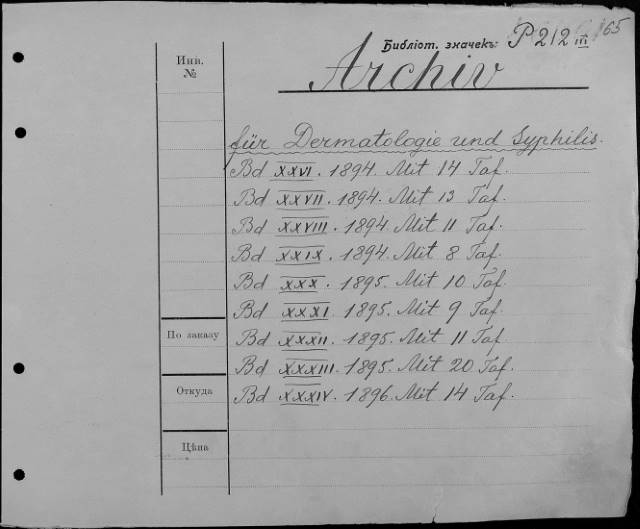 Библіот. значекъ: P 212 III 65
Инв.
№
Archiv
für Dermatologie und Syphilis.
Bd XXVI. 1894. Mit 14 Taf.
Bd XXVII. 1894. Mit 13 Taf.
Bd XXVIII. 1894. Mit 11 Taf.
Bd XXIX. 1894. Mit 8 Taf.
Bd XXX. 1895. Mit 10 Taf.
Bd XXXI. 1895. Mit 9 Taf.
По заказу
Bd XXXII. 1895. Mit 11 Taf.
Bd XXXIII. 1895. Mit 20 Taf.
Откуда
Bd XXXIV. 1896. Mit 14 Taf.
Цѣна